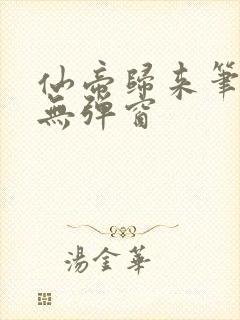 仙帝歸來筆
無彈窗
湯金華